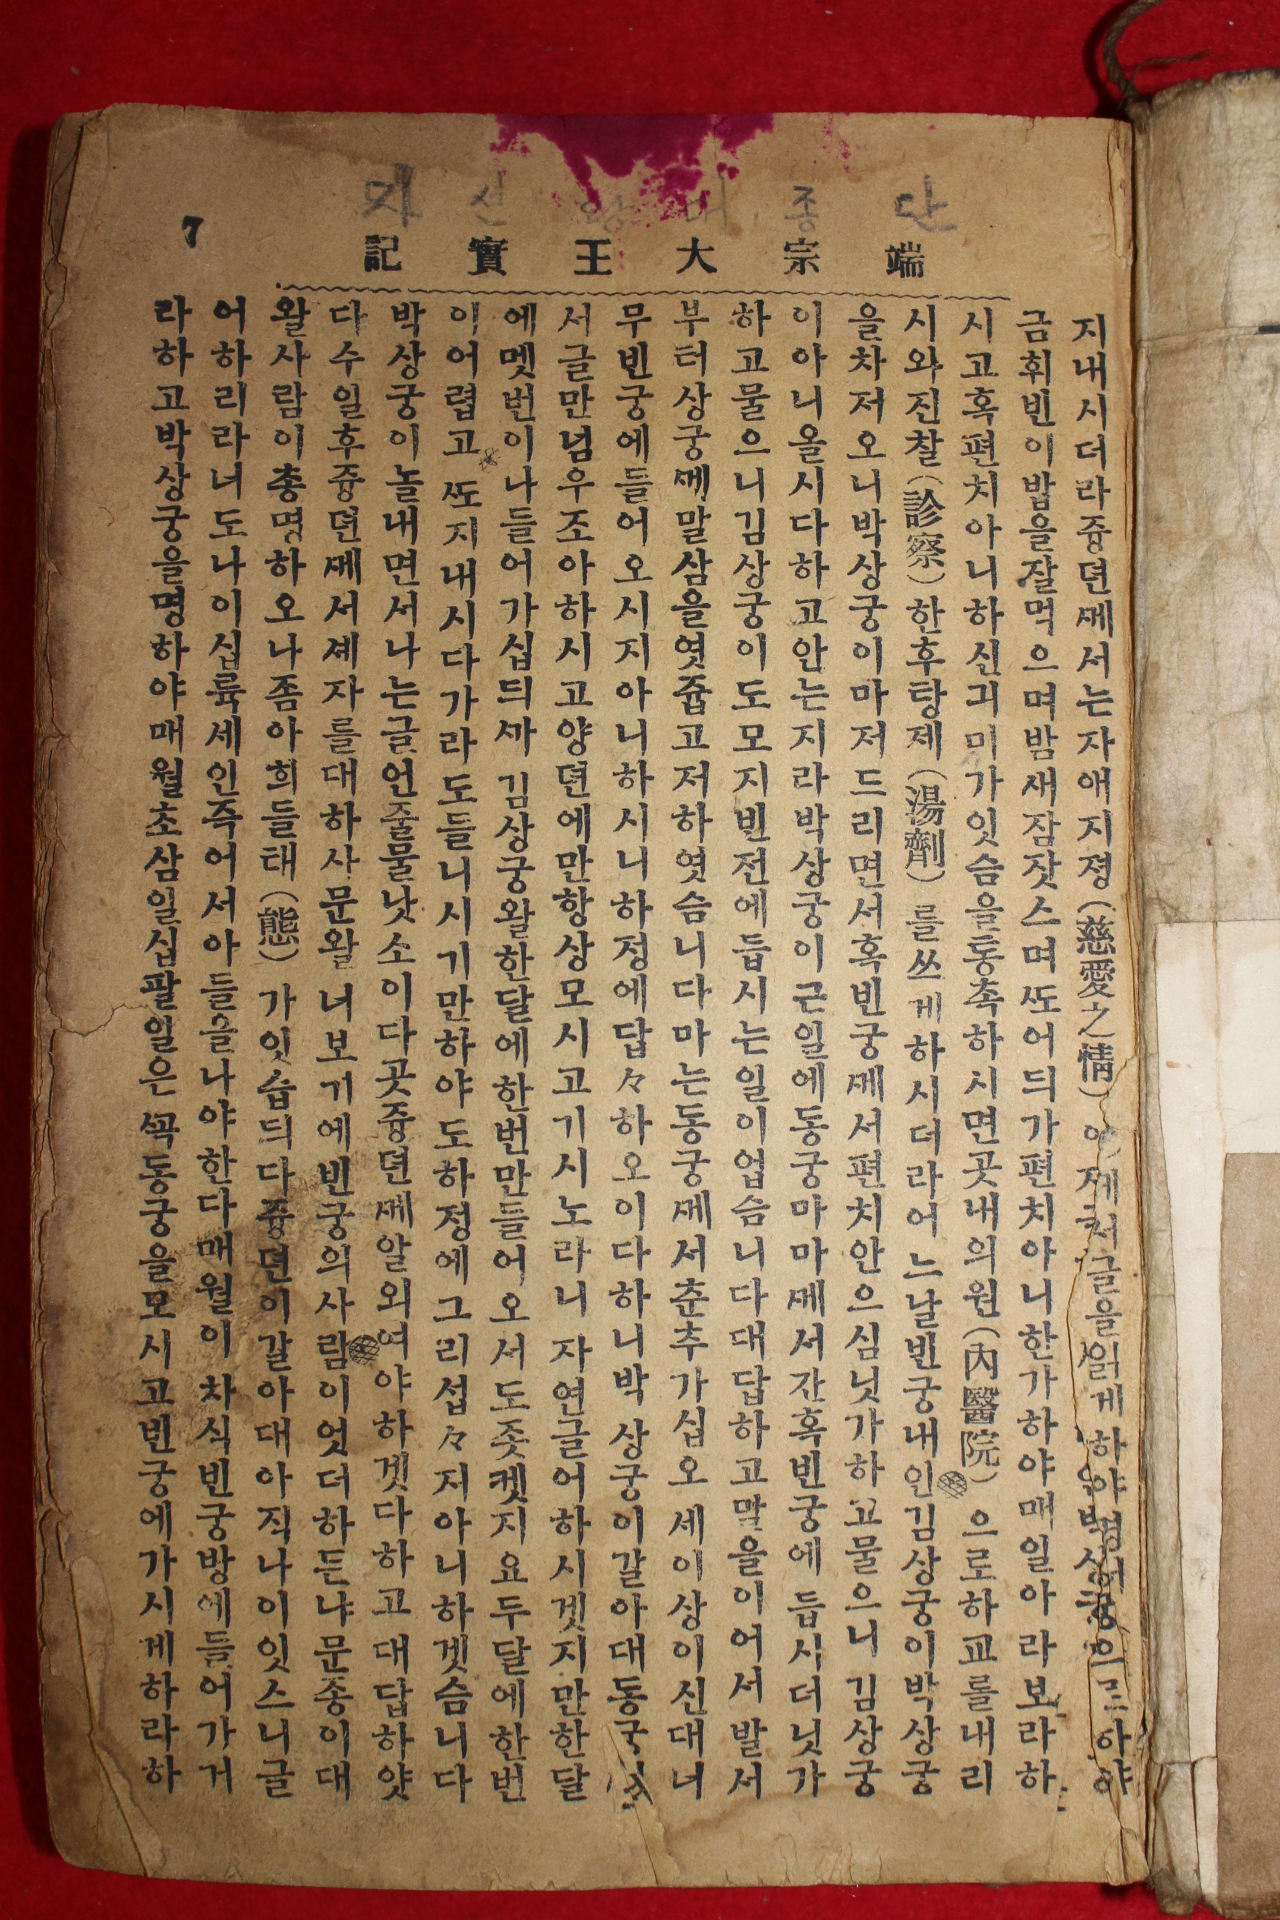 7
단종대왕
端宗大王實記
지내시더라즁뎐ᄭᅦ서는자애지졍(慈愛之情)
금휘빈이밥을잘먹으며밤새잠잣스며ᄯᅩ어듸가편치아니한가하야매일아라보라하
시고혹편치아니하신긔미가잇슴을통촉하시면곳내의원(內醫院)으로하교를내리
시와진찰(診察)한후탕제(湯劑)를쓰게하시더라어느날빈궁내인김상궁이박상궁
을차저오니박상궁이마저드리면서혹빈궁ᄭᅦ서편치안으심닛가하고물으니김상궁
이아니올시다하고안는지라박상궁이근일에동궁마마ᄭᅦ서잔혹빈궁에듭시더닛가
하고물으니김상궁이도모지빈전에듭시는일이업슴니다대답하고말을이어서발서
부터상궁ᄭᅦ말삼을엿쥽고저하엿슴니다마는동궁ᄭᅦ서춘추가십오세이상이신대너
무빈궁에들어오시지아니하시니하정에답々하오이다하니박상궁이갈아대동궁
서글만넘우조아하시고양뎐에만항상모시고기시노라니자연글어하시겟지만한달
에멧번이나들어가십듸ᄭᅡ김상궁왈한달에한번만들어오서도좃켓지요두달에한번
이어렵고ᄯᅩ지내시다가라도들니시기만하야도하정에그리섭々지아니하겟슴니다
박상궁이놀내면서나는글언줄물낫소이다곳즁뎐ᄭᅦ알외여야하겟다하고대답하얏
다수일후즁뎐ᄭᅦ서셰자를대하사문왈너보기에빈궁의사람이엇더하든냐문종이대
왈사람이총명하오나좀아희들태(態)가잇습듸다즁뎐이갈아대아직나이잇스니글
어하리라너도나이십륙세인즉어서아들을나야한다매월이차식빈궁방에들어가거
라하고박상궁을명하야매월초삼일십팔일은ᄭᅩᆨ동궁을모시고빈궁에가시게하라하